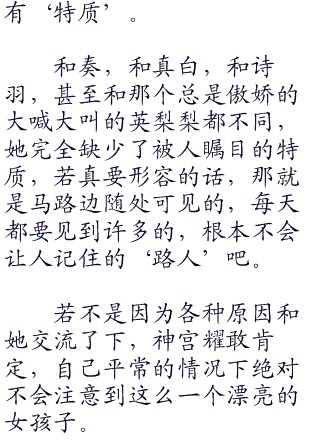 有‘特质’。
和奏，和真白，和诗
羽，甚至和那个总是傲娇的
大喊大叫的英梨梨都不同，
她完全缺少了被人瞩目的特
质，若真要形容的话，那就
是马路边随处可见的，每天
都要见到许多的，根本不会
让人记住的‘路人’吧。
若不是因为各种原因和
她交流了下，神宫耀敢肯
定，自己平常的情况下绝对
不会注意到这么一个漂亮的
女孩子。